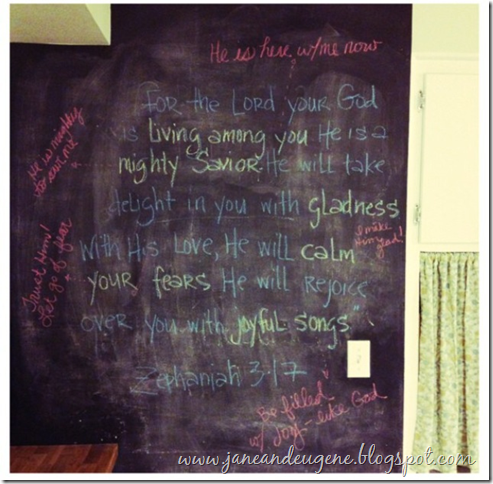 He is here w/me now
For the Lord your God
is living among you He is a
mighty Savior. He will take
delight in you with gladness
With His Love, He will calm
your fears He will Rejoice
over you with joyful songs."
Zephaniah 3:17
He is mighty
to save me
Trust Him!
Let go of fear
I make
Him glad!
Be filled
w/ Joy - like God
www.janeandeugene.blogspot.com